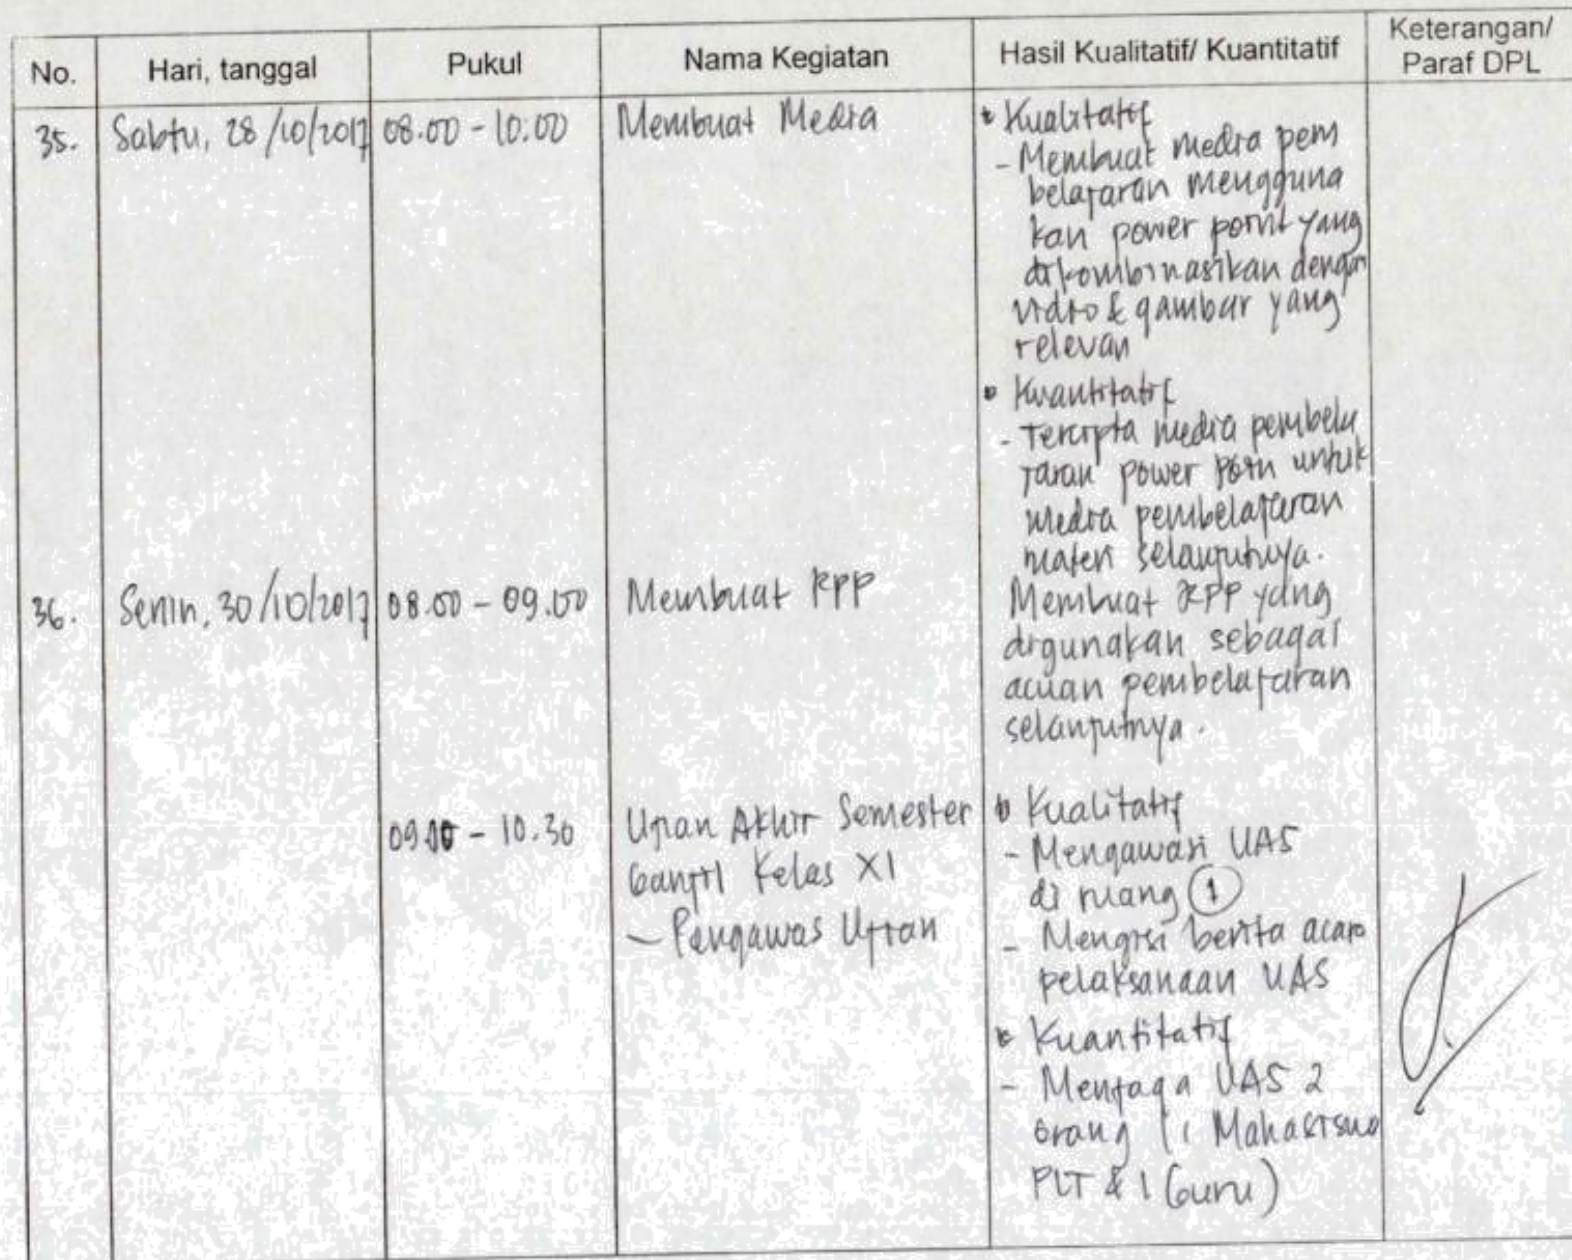 No. Hari, tanggal Pukul Nama Kegiatan Hasil Kualitatif/ Kuantitatif Keterangan/
Paraf DPL
35. Sabtu, 28/10/2017 08.00 - 10.00 Membuat Media • Kualitatif
- Membuat media pem
belajaran mengguna
kan power point yang
dikombinasikan dengan
vidio & gambar yang
relevan
• Kuantitatif
- Tercipta media pembela
jaran power poin untuk
media pembelajaran
materi selanjutnya.
36. Senin, 30/10/2017 08.00 - 09.00 Membuat RPP Membuat RPP yang
digunakan sebagai
acuan pembelajaran
selanjutnya.
- 10.30 Ujian Akhir Semester • Kualitatif
Ganjil Kelas XI - Mengawasi UAS
di ruang 1
- Pengawas Ujian - Mengisi berita acara
pelaksanaan UAS
• Kuantitatif
- Menjaga UAS 2
orang (1 Mahasiswa
PLT & 1 Guru)